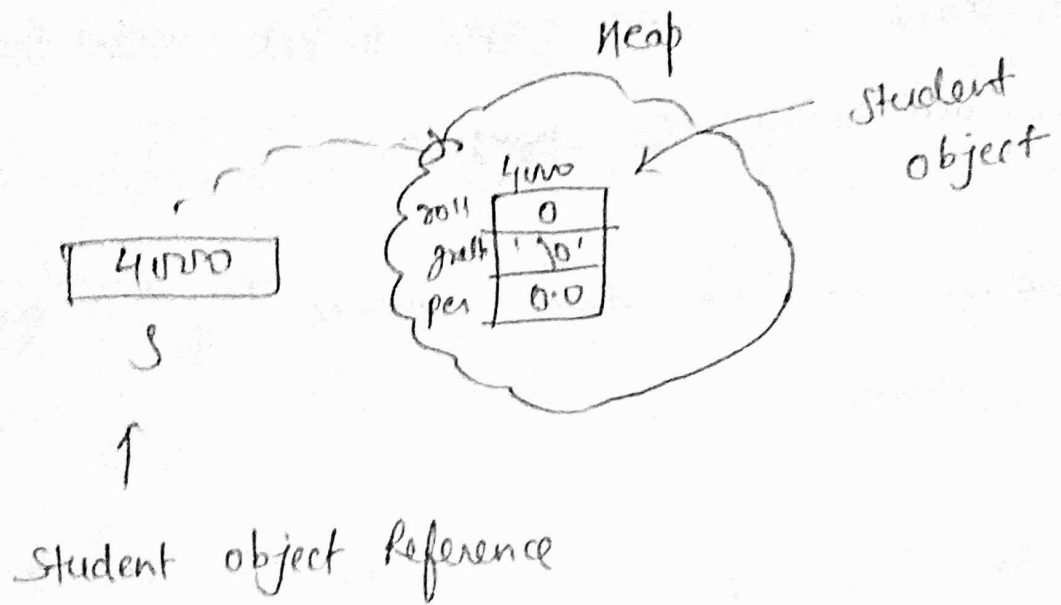 Heap
Student
object
4000
roll 0
'\0'
per 0.0
4000
S
Student object Reference